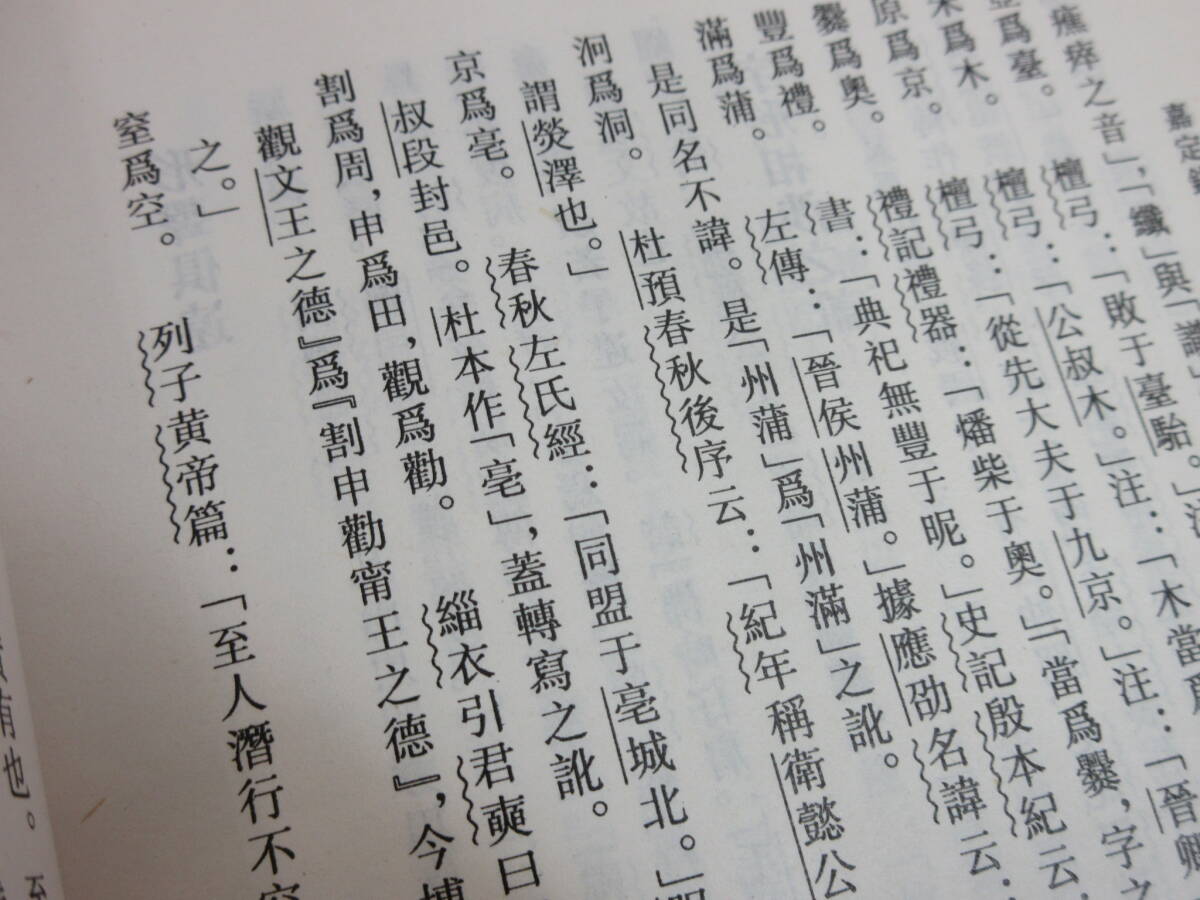 嘉定
瘁之音」,「纖」與「
爲臺。 檀弓:「敗于臺駘。」
爲木。 檀弓:「公叔木。」注:「木當爲
原爲京。 檀弓:「從先大夫于九京。」注:「晉卿
爨爲奧。 禮記禮器:「燔柴于奧。」「當爲爨,字之
豐爲禮。 書:「典祀無豐于昵。」史記殷本紀云:
滿爲蒲。 左傳:「晉侯州蒲。」據應劭名諱云:
是同名不諱。是「州蒲」爲「州滿」之訛。
泂爲洞。 杜預春秋後序云:「紀年稱衛懿公
謂熒澤也。」
京爲亳。 春秋左氏經:「同盟于亳城北。」
叔段封邑。杜本作「亳」,蓋轉寫之訛。
割爲周,申爲田,觀爲勸。 緇衣引君奭曰
觀文王之德』爲『割申勸甯王之德』,今博
之。」
窒爲空。 列子黄帝篇:「至人潛行不空
有也。